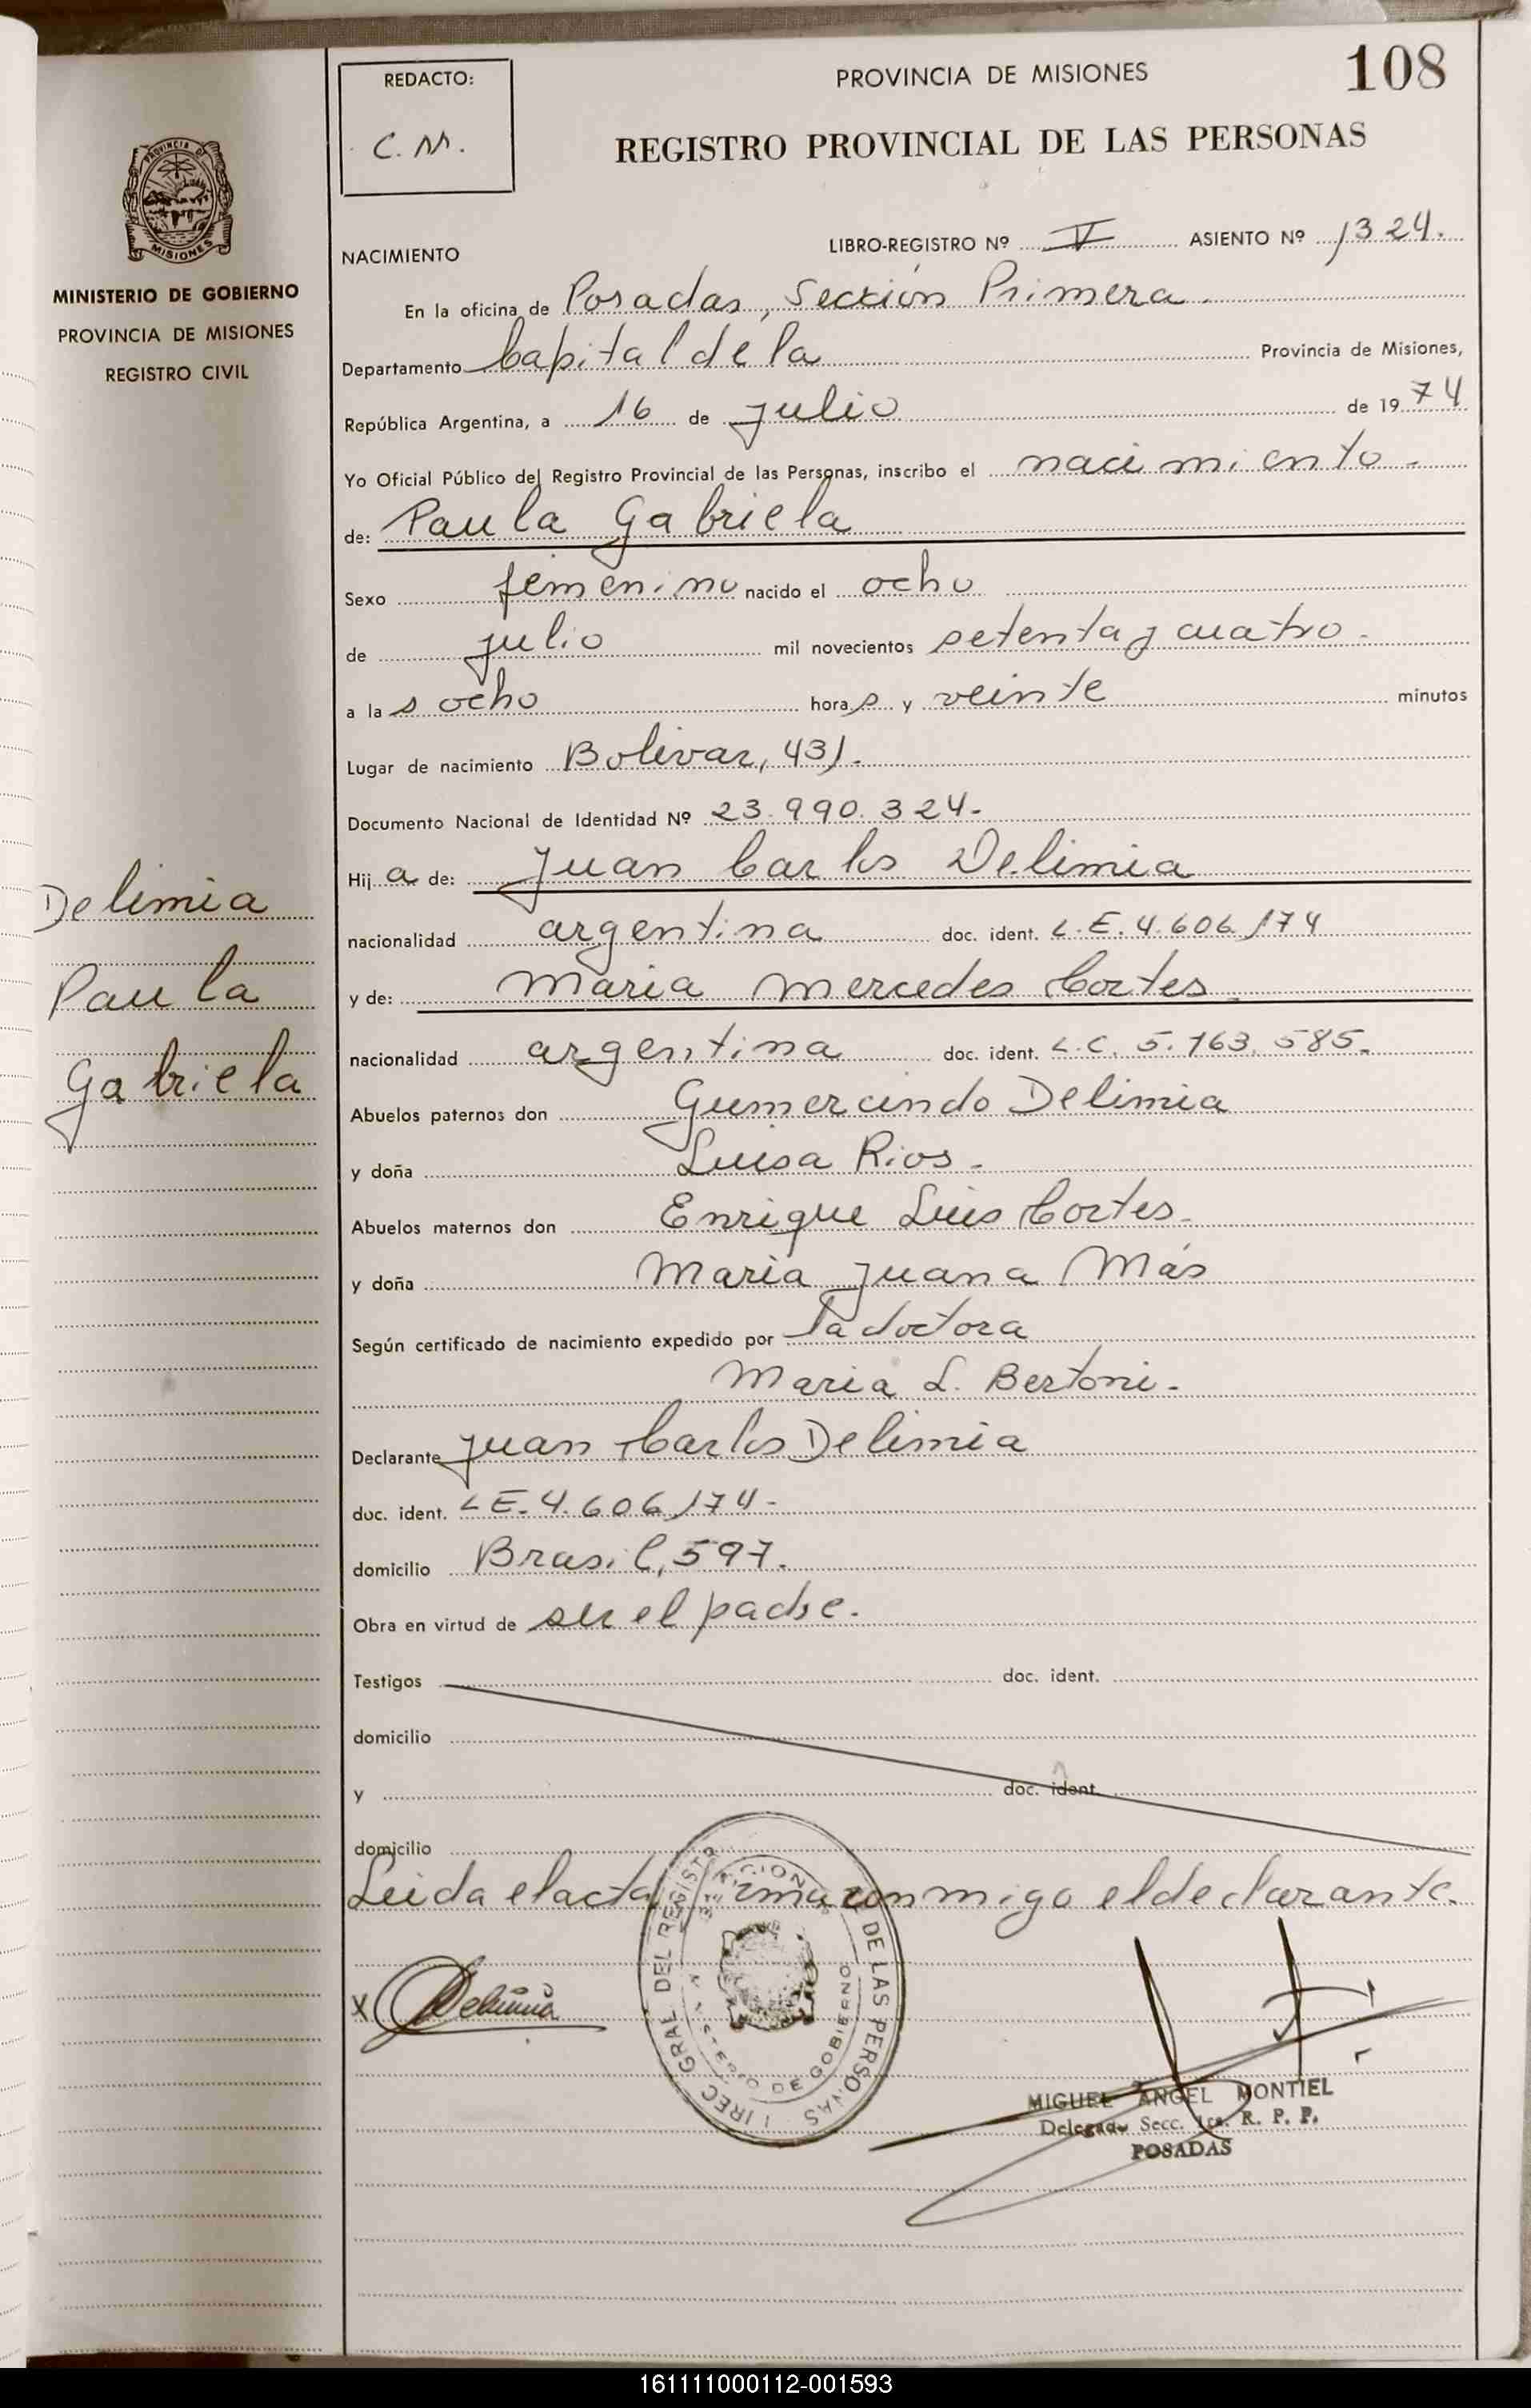 REDACTO:
C. M.
PROVINCIA DE MISIONES
108
REGISTRO PROVINCIAL DE LAS PERSONAS
PROVINCIA DE
MISIONES
MINISTERIO DE GOBIERNO
PROVINCIA DE MISIONES
REGISTRO CIVIL
NACIMIENTO
LIBRO-REGISTRO Nº V ASIENTO Nº 1324.
En la oficina de Posadas, Sección Primera.
Departamento Capital de la Provincia de Misiones,
República Argentina, a 16 de julio de 1974
Yo Oficial Público del Registro Provincial de las Personas, inscribo el nacimiento-
de: Paula Gabriela
Sexo femenino nacido el ocho
de julio mil novecientos setenta y cuatro-
a las ocho horas y veinte minutos
Lugar de nacimiento Bolivar, 431.
Documento Nacional de Identidad Nº 23.990.324-
Hija de: Juan Carlos Delimia
nacionalidad argentina doc. ident. L.E. 4.606.174
y de: Maria Mercedes Cortes.
nacionalidad argentina doc. ident. L.C. 5.163.585-
Abuelos paternos don Gumercindo Delimia
y doña Luisa Rios-
Abuelos maternos don Enrique Luis Cortes-
y doña Maria Juana Más
Según certificado de nacimiento expedido por la doctora
Maria L. Bertoni-
Declarante Juan Carlos Delimia
doc. ident. L E. 4.606.174-
domicilio Brasil, 597.
Obra en virtud de ser el padre.
Testigos doc. ident.
domicilio
y doc. ident.
domicilio
Leida el acta firma conmigo el declarante.
Delimia
Paula
Gabriela
X Delimia
DIREC. GRAL DEL REGISTRO DE LAS PERSONAS
MINISTERIO DE GOBIERNO
MIGUEL ANGEL MONTIEL
Delegado Secc. 1ra. R. P. P.
POSADAS
161111000112-001593